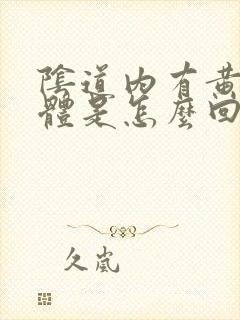 陰道內有黃
體是怎麼回
久嵐